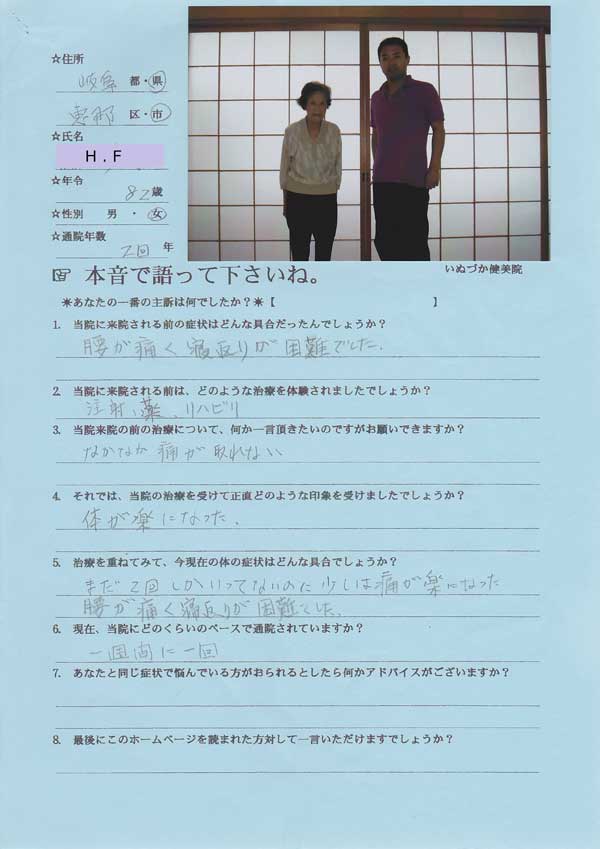 ☆住所
岐阜 都・県
恵那 区・市
☆氏名
H.F
☆年令
82歳
☆性別 男・女
☆通院年数
2回 年
いぬづか健美院
本音で語って下さいね。
＊あなたの一番の主訴は何でしたか？＊【 】
1. 当院に来院される前の症状はどんな具合だったんでしょうか？
腰が痛く寝返りが困難でした.
2. 当院に来院される前は、どのような治療を体験されましたでしょうか？
注射、薬、リハビリ
3. 当院来院の前の治療について、何か一言頂きたいのですがお願いできますか？
なかなか痛が取れない
4. それでは、当院の治療を受けて正直どのような印象を受けましたでしょうか？
体が楽になった.
5. 治療を重ねてみて、今現在の体の症状はどんな具合でしょうか？
まだ2回しかいってないのに少しは痛が楽になった
腰が痛く寝返りが困難でした.
6. 現在、当院にどのくらいのペースで通院されていますか？
一週間に一回
7. あなたと同じ症状で悩んでいる方がおられるとしたら何かアドバイスがございますか？
8. 最後にこのホームページを読まれた方対して一言いただけますでしょうか？